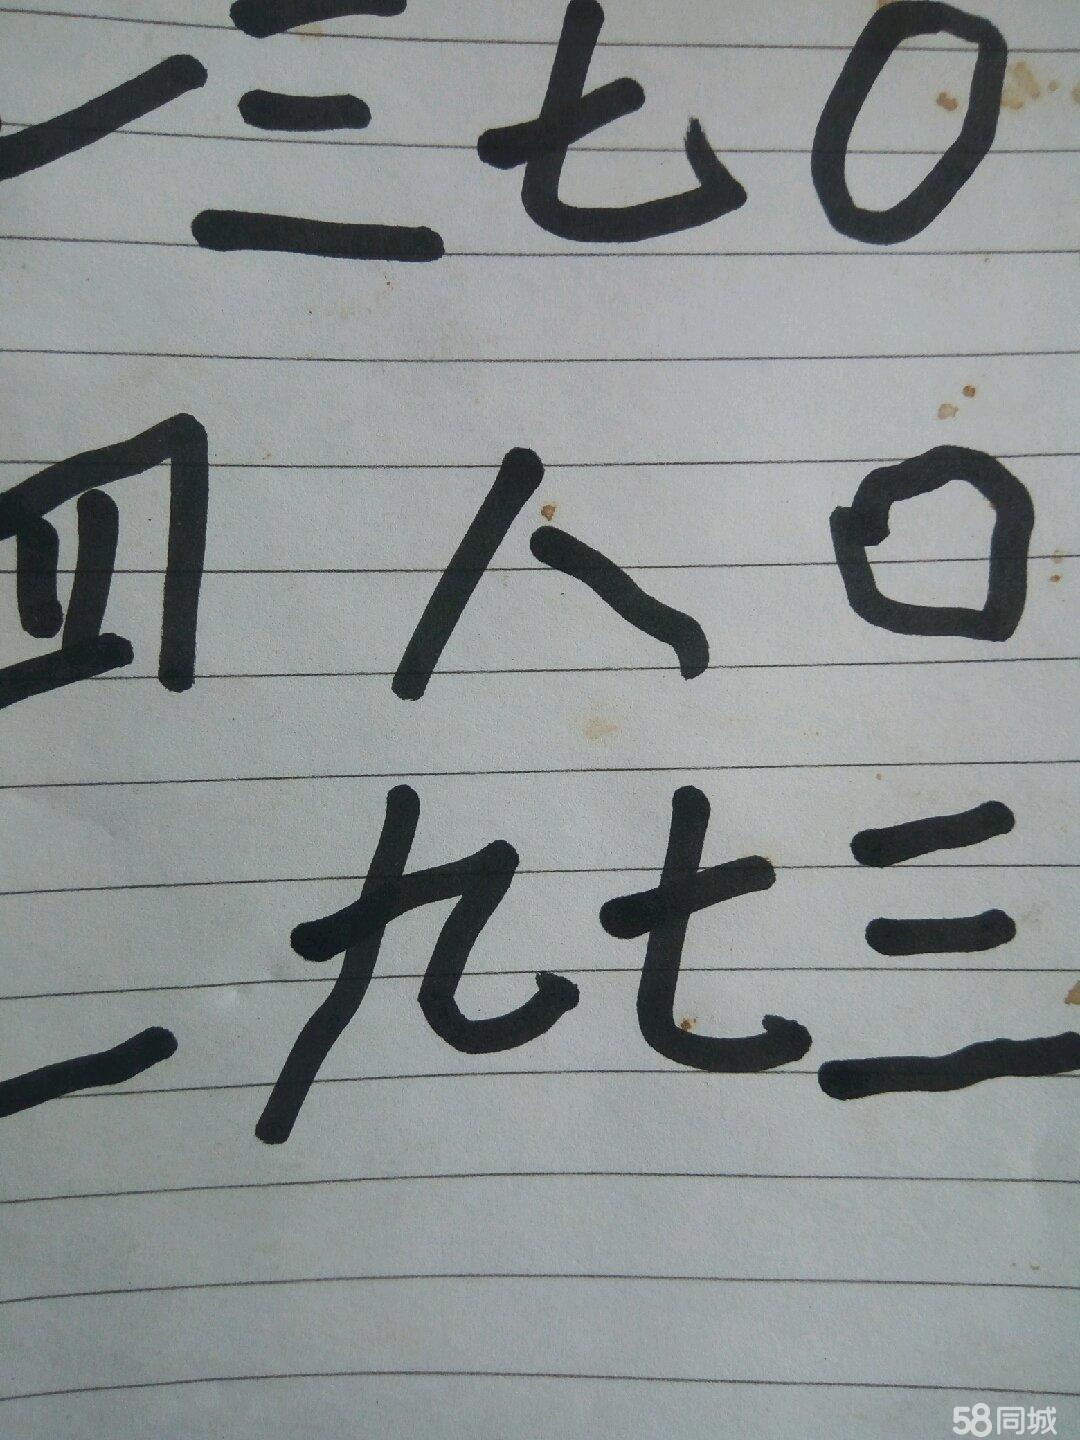 一三七〇
四八〇
一九七三
58同城